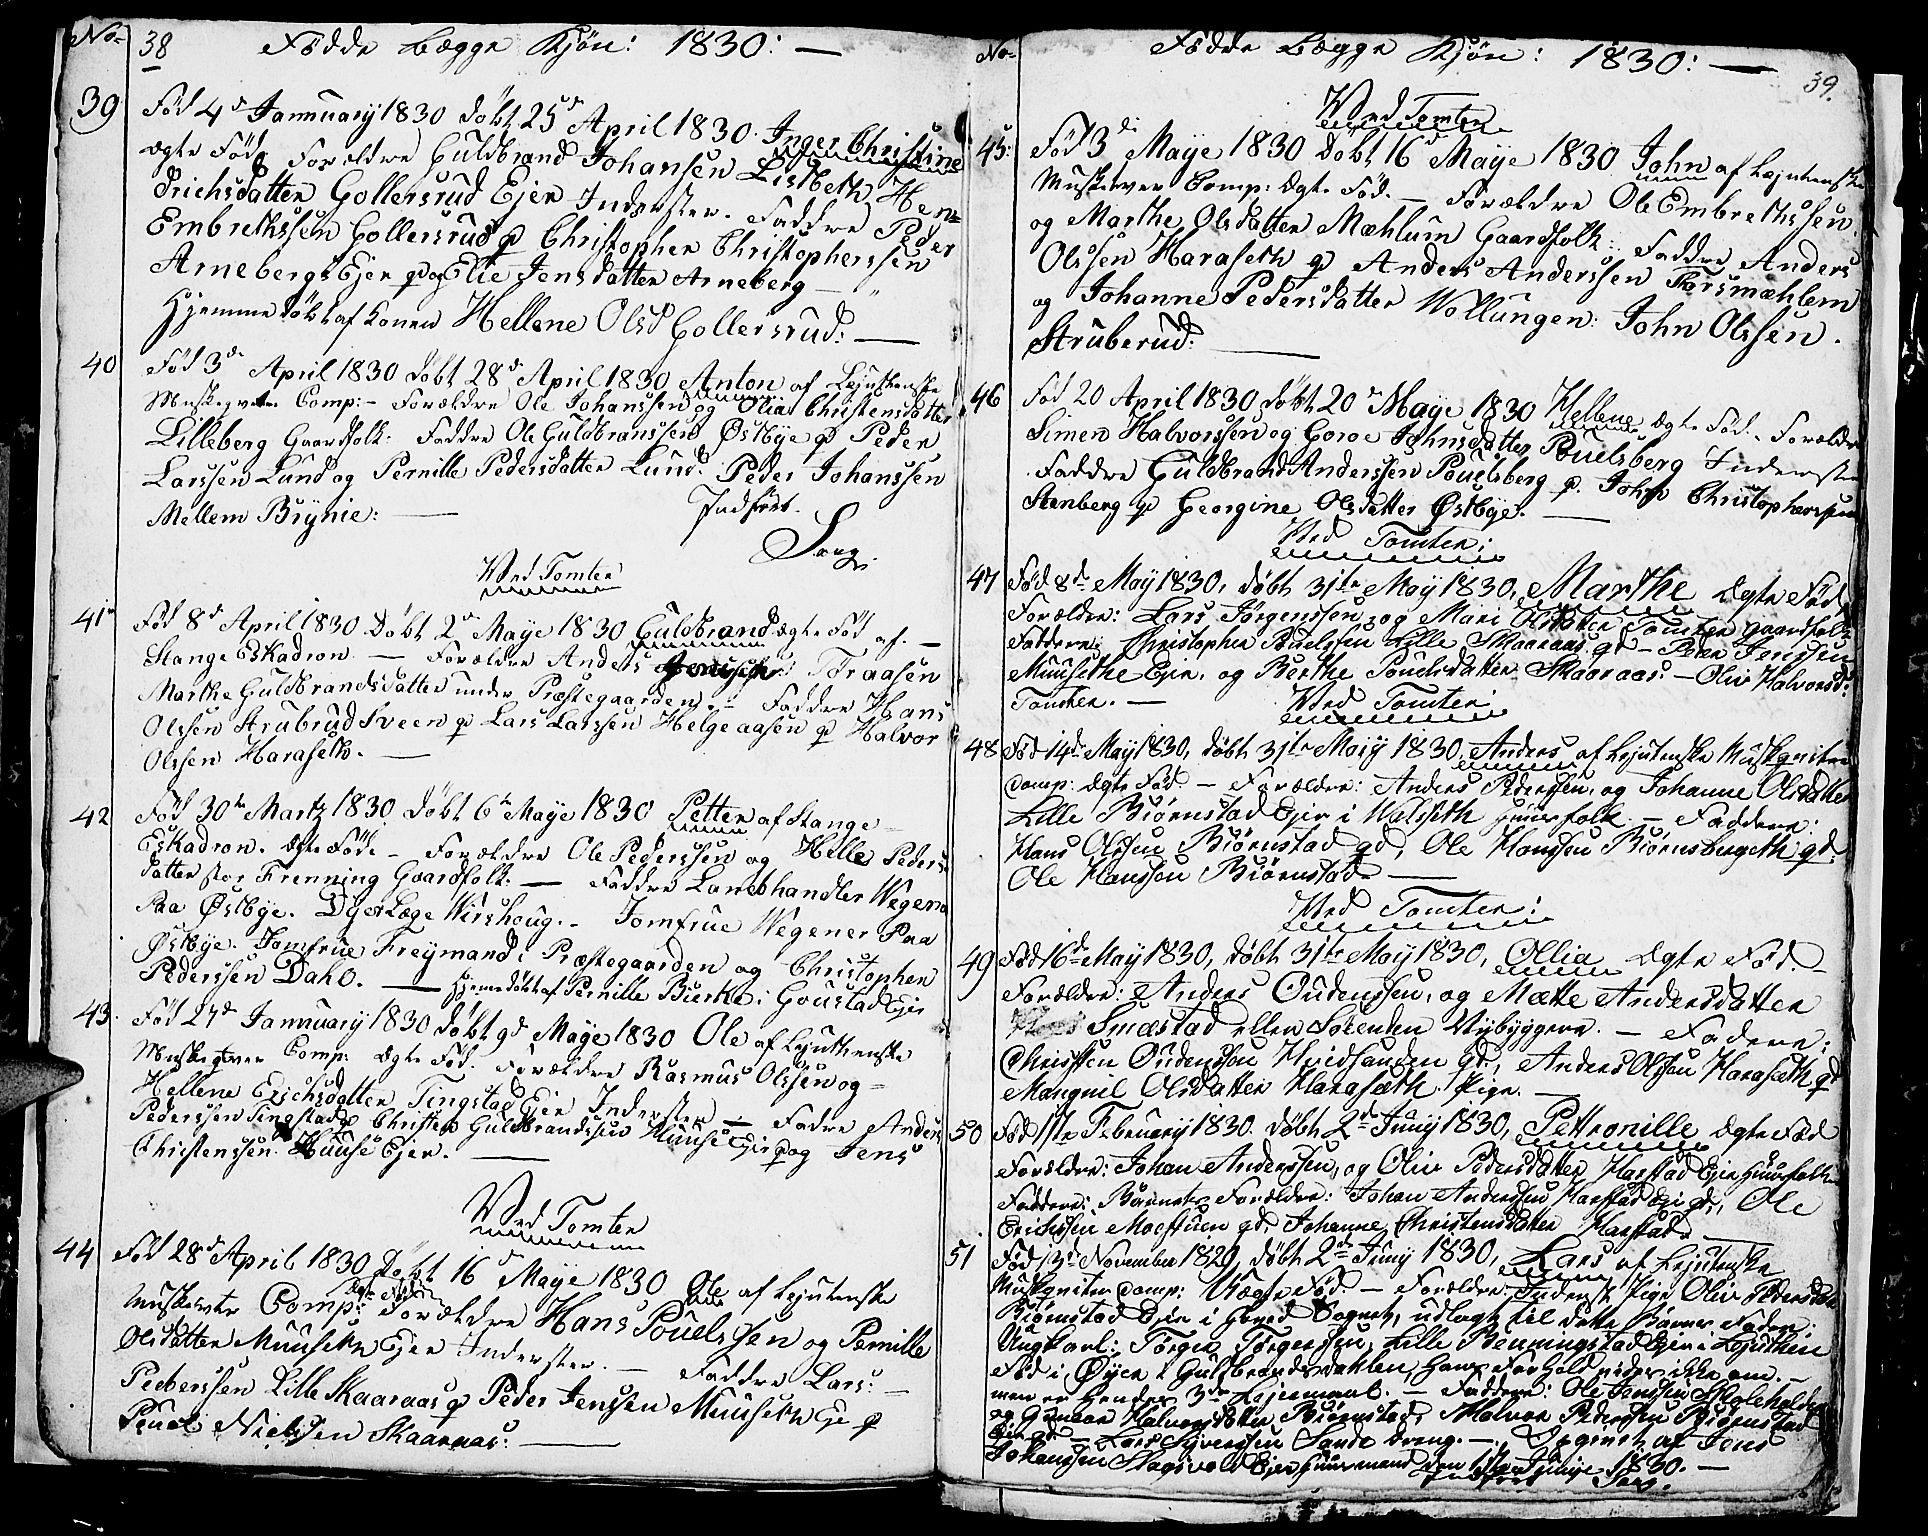 No 38 Födde begge Kjön: 1830: —
39 Föd 4de Januuary 1830 döbt 25de April 1830. Inger Christine
ægte Föd, Forældre Guldbrand Johansen Lisbeth Hen=
drichsdatter Gollersrud Ejer Inderster. Faddre Peder
Embrethssen Gollersrud p Christopher Christopherssen
Arneberg Ejer p og Elie Jensdatter Arneberg —
Hjemmedöbt af Konen Hellene Olsd Gollersrud: —
40 Föd 3de April 1830 döbt 28de April 1830 Anton af Lejuthenske
Muskqveter Comp:– Forældre Ole Johanssen og Olia Christensdatter
Lilleberg Gaardfolk: Faddre Ole Guldbranssen Østbye p Peder
Larssen Lund og Pernille Pedersdatter Lund. Peder Johanssen
Mellem Brynie: — Indfört.
Sorg.
Ved Tomter
41 Föd 8de April 1830 Döbt 2de Maye 1830 Guldbrand ægte Föd af. —
Stange Eskadron. — Forældre Anders Toraasen
Marthe Guldbrandsdatter under Præstegaarden. — Faddre Hans
Olssen Strubrud Sveen p Lars Larssen Helgeaasen p Halvor
Olssen Haraseth. —
42 Föd 30te Martz 1830 döbt 6te Maye 1830 Petter af Stange
Eskadron. ægte Föd. – Forældre Ole Pederssen og Helle Peders
datter stor Frenning Gaardfolk. — Faddre Landhandler Wegener
Paa Østbye. Dyerlæge Wirshoug. – Jomfrue Wegener Paa
Østbye. Jomfrue Freymand i Præstegaarden og Christopher
Pederssen Dahl. — Hjemedöbt af Pernille Burke i Goustad Ejer
43. Föd 27de Januuary 1830 döbt 9de Maye 1830 Ole af Lejuthenske
Muskqveter Comp: ægte Föd. Forældre Rasmus Olssen og
Hellene Erichsdatter Tingstad Ejer Inderster — Fadre Anders
Pederssen Tingstad p Christen Guldbrandssen Huuse Ejer p og Jens
Christenssen Huuse Ejer. —
Ved Tomter
44 Föd 28de April 1830 Döbt 16de Maye 1830 Ole af Lejutenske
Muskevete Comp: ægte Föd Forældre Hans Pouelssen og Pernille
Olsdatter Muuseth Ejer Inderster. — Faddre Lars: —
Pederssen Lille Skaaraas p Peder Jenssen Muuseth Ejer p
Pouel Nielssen Skaaraas: —
No Födde begge Kjön: 1830: — 39.
Ved Tomter
45: Föd 3de Maye 1830 Döbt 16de Maye 1830 John af Lejutenske
Muskevær Comp: ægte Föd. — Forældre Ole Embrethssen
og Marthe Olsdatter Mæhlum Gaardfolk: Faddre Anders
Olssen Haraseth p Anders Anderssen Forsmæhlem
og Johanne Pedersdatter Wollungen: John Olssen.
Struberud: —
46 Föd 20 April 1830 döbt 20de Maye 1830 Hellene ægte Föd. Forældre
Simen Halvorssen og Goroe Johnsdatter Pouelsberg Inderster
Faddre Guldbrand Anderssen Pouelsberg p. John Christopherssen
Stenberg p Georgine Olsdatter Østbye. —
Ved Tomter:
47 Föd 8de May 1830, döbt 31te May 1830, Marthe ægte Föd
Forældre: Lars Jörgenssen, og Mari Olsdatter Tomter gaardfolk
Faddere: Christopher Pouelssen Lille Skaaraas gd — Peder Jenssen
Muusethe Ejer, og Berthe Pouelsdatter Skaaraas. – Oliv Halvorsd:
Tomter. —
Ved Tomter
48 Föd 14de May 1830, döbt 31te May 1830, Anders af Lejutenske Muskqveter
Comp: ægte Föd. — Forældre: Anders Pederssen, og Johanne Olsdatter
Lille Björnstad Ejer i Walseth Huusfolk. — Faddere:
Hans Olssen Björnstad gd, Ole Hanssen Björnsbergeth gd.
Ole Hanssen Björnstad. —
Ved Tomter:
49 Föd 16de May 1830, döbt 31te May 1830, Ollia ægte Föd. —
Forældre: Anders Oudenssen, og Mætte Andersdatter
Smæstad eller Sörenden Nybyggere. — Fadere:
Christen Oudenssen Hvidsanden Gd:, Anders Olssen Haraseth gd
Manguel Olsdatter Haraseth. Pige. —
50 Föd 11te February 1830. döbt 2de Juny 1830, Pettronille ægte Föd
Forældre: Johan Anderssen, og Oliv Pedersdatter Harstad Ejer Huusfolk
Faddere: Barnets Forældre: Johan Anderssen Harstad Eje gd:, Ole
Erichssen Moestuen gd. Johanne Christensdatter Harstad. —
51 Föd 13de November 1829, döbt 2de Juny 1830, Lars af Lejutenske
Muskqveter Comp: Uægte Föd. — Forældre: Indenst. Pige Oliv Pedersdatter
Björnstad Ejer i Sognet, udlagt til dette Barns Fader:
Ungkarl: Törger Törgerssen, Lille Benningstad Ejer i Lejuthen
Föd i Øyer i Guldbrandsdahlen, hans Forhold vides ikke om. —
men er hendes 3de Lejermaal. — Faddere: Ole Jenssen Skoleholder
og Gunnor Halvorsdatter Björnstad, Halvor Pederssen Björnstad
Eje gd — Lars Syverssen Sande dreng. — Angivet af Jens
Johanssen Slagsvold Ejer Huusmand den 11te Junye 1830. —
Indfört Sorg.